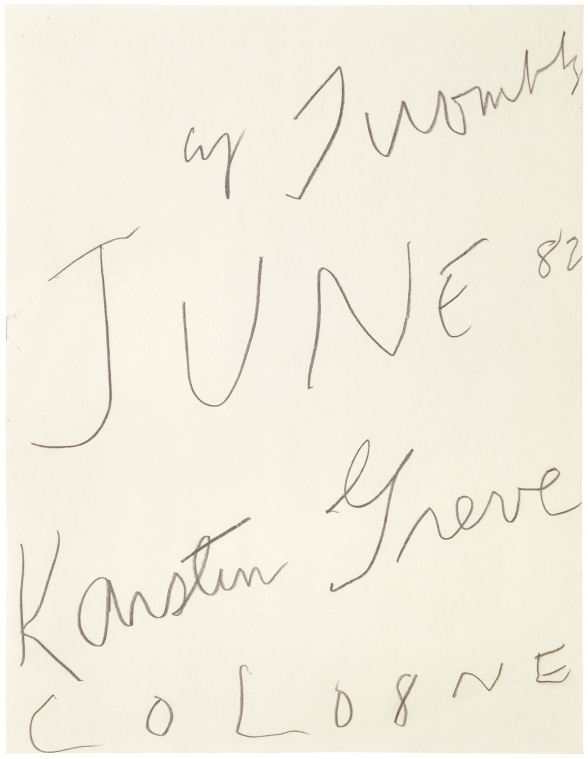 Cy Twombly
JUNE 82
Karsten Greve
COLOGNE